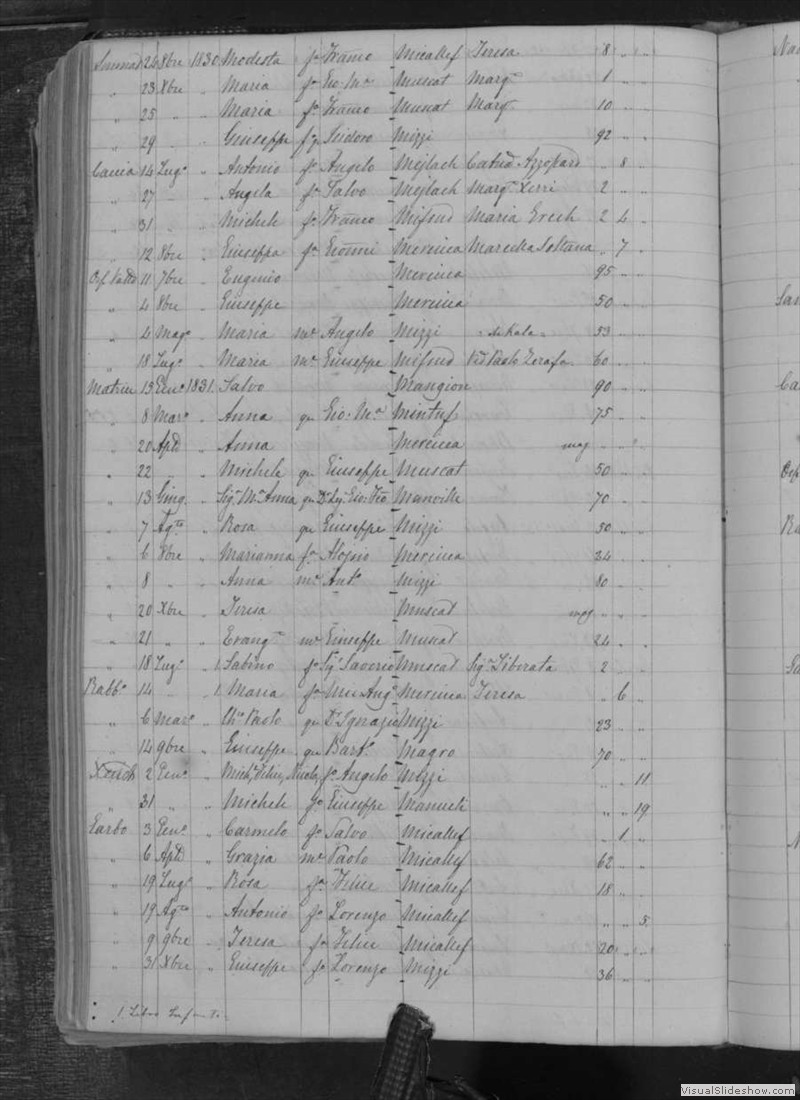 24 8bre 1830 Modesta fa Franco Micallef Teresa 8 " "
" 23 Xbre " Maria fa Gio. Ma Muscat Margta 1 " "
" 25 " " Maria fa Franco Muscat Margta 10 " "
" 29 " " Giuseppe Isidoro Mizzi 92 " "
14 Lugo " Antonio fo Angelo Mejlach Azzopard " 8 "
" 27 " " Angela fa Salvo Mejlach Margta Xerri 2 " "
" 31 " " Michele fo Franco Mifsud Maria Grech 2 4 "
" 12 8bre " Giuseppa fa Giomi Mercieca Soltana " 7 "
11 7bre " Eugenio Mercieca 95 " "
" 4 8bre " Giuseppe Mercieca 50 " "
" 4 Mago " Maria me Angelo Mizzi 53 " "
" 18 Lugo " Maria me Giuseppe Mifsud Zerafa 60 " "
Matrice 13 Geno 1831 Salvo Mangion 90 " "
" 8 Maro " Anna qu Gio: Ma Mintuf 75 " "
" 20 Aple " Anna Mercieca mag " "
" 22 " " Michele qu Giuseppe Muscat 50 " "
" 13 Giug. " Siga Ma Anna qu Manville 70 " "
" 7 Agto " Rosa qu Giuseppe Mizzi 50 " "
" 6 8bre " Marianna fa Aloisio Mercieca 34 " "
" 8 " " Anna me Anto Mizzi 80 " "
" 20 Xbre " Teresa Muscat mag " "
" 21 " " Evangta me Giuseppe Muscat 24 " "
" 18 Lugo 1. Sabino fo Saverio Muscat Siga Liberata 2 " "
Rabbo 14 " 1. Maria fa Mercieca Teresa " 6 "
" 6 Maro " Paolo qu Dr Ignazio Mizzi 23 " "
" 14 9bre " Giuseppe qu Barto Magro 70 " "
2 Geno " fo Angelo Mizzi " " 11
" 31 " " Michele fo Giuseppe Manueli " " 19
Garbo 3 Geno " Carmelo fo Salvo Micallef " 1 "
" 6 Aple " Grazia me Paolo Micallef 62 " "
" 19 Lugo " Rosa fa Felice Micallef 18 " "
" 19 Agto " Antonio fo Lorenzo Micallef " " 5
" 9 9bre " Teresa fa Felice Micallef 20 " "
" 31 Xbre " Giuseppe fo Lorenzo Mizzi 36 " "
1. Libro
VisualSlideshow.com